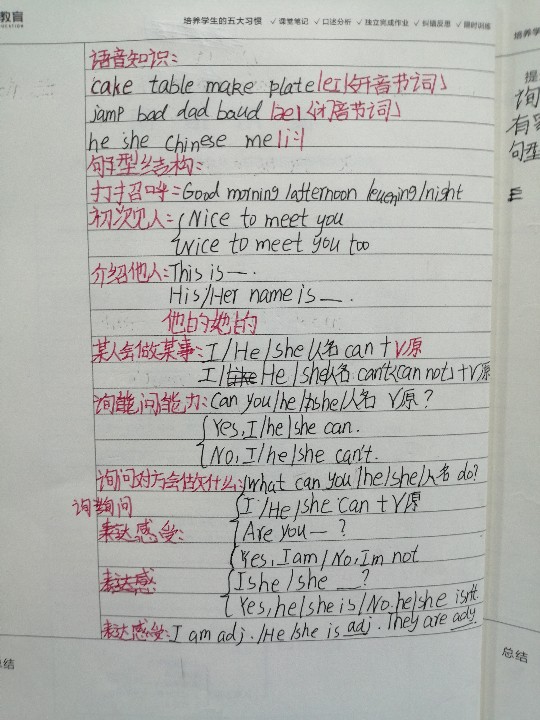 教育
培养学生的五大习惯 ✓课堂笔记 ✓口述分析 ✓独立完成作业 ✓纠错反思 ✓限时训练
培养学
语音知识:
cake table make plate [eɪ] (开音节词)
jamp bad dad baud [æ] (闭音节词)
he she chinese me [i:]
句型结构:
打招呼:Good morning/afternoon/evening/night
初次见人:{Nice to meet you
Nice to meet you too
介绍他人:This is —.
His/Her name is —.
他的 她的
某人会做某事:I/He/she/人名 can + V原
I/He/she/人名 can't(can not) + V原
询问能力:Can you/he/she/人名 V原?
{Yes, I/he/she can.
No, I/he/she can't.
询问对方会做什么:What can you/he/she/人名 do?
{I/He/she can + V原
询问
表达感受:{Are you — ?
Yes, I am/No, Im not
表达感 {Ishe/she — ?
Yes, he/she is/No he/she isn't.
表达感受:I am adj./He/she is adj. They are adj.
提
询
有
句型
总结
总结